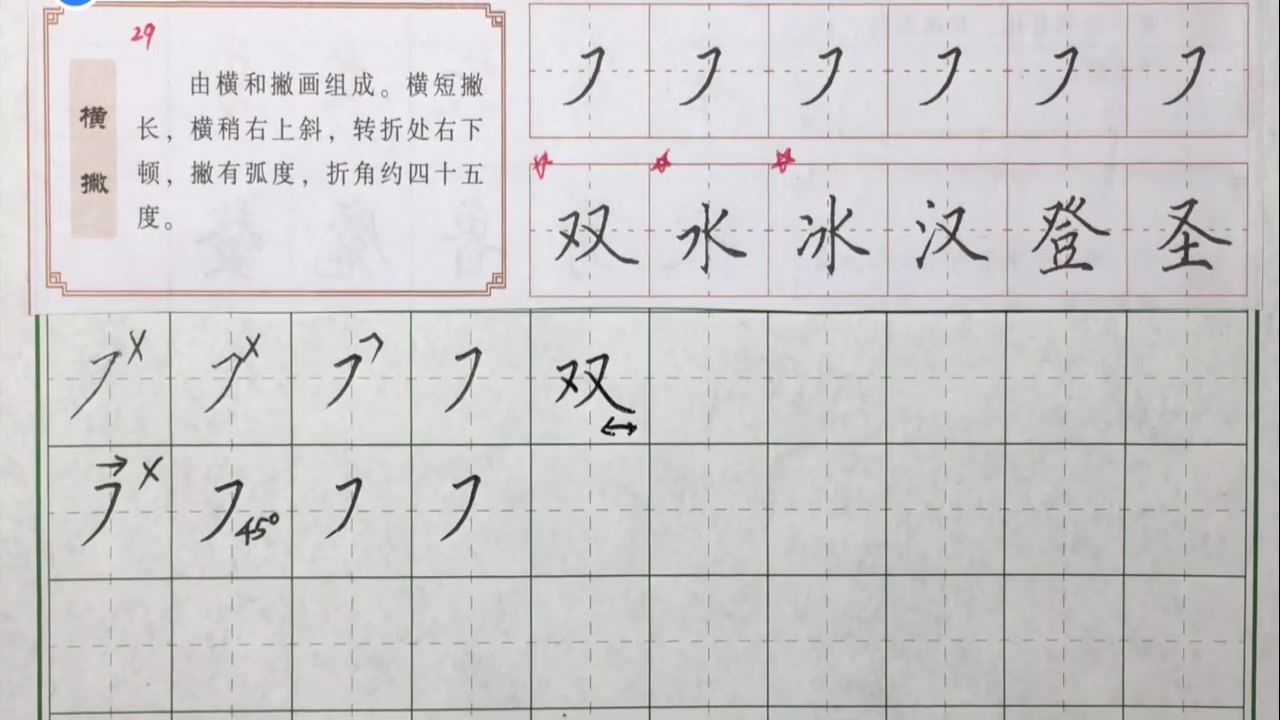 29
横撇
由横和撇画组成。横短撇
长，横稍右上斜，转折处右下
顿，撇有弧度，折角约四十五
度。
㇇ ㇇ ㇇ ㇇ ㇇ ㇇
双 水 冰 汉 登 圣
㇇ × ㇇ × ㇇ ㇇ 双
㇇ × ㇇ 45° ㇇ ㇇